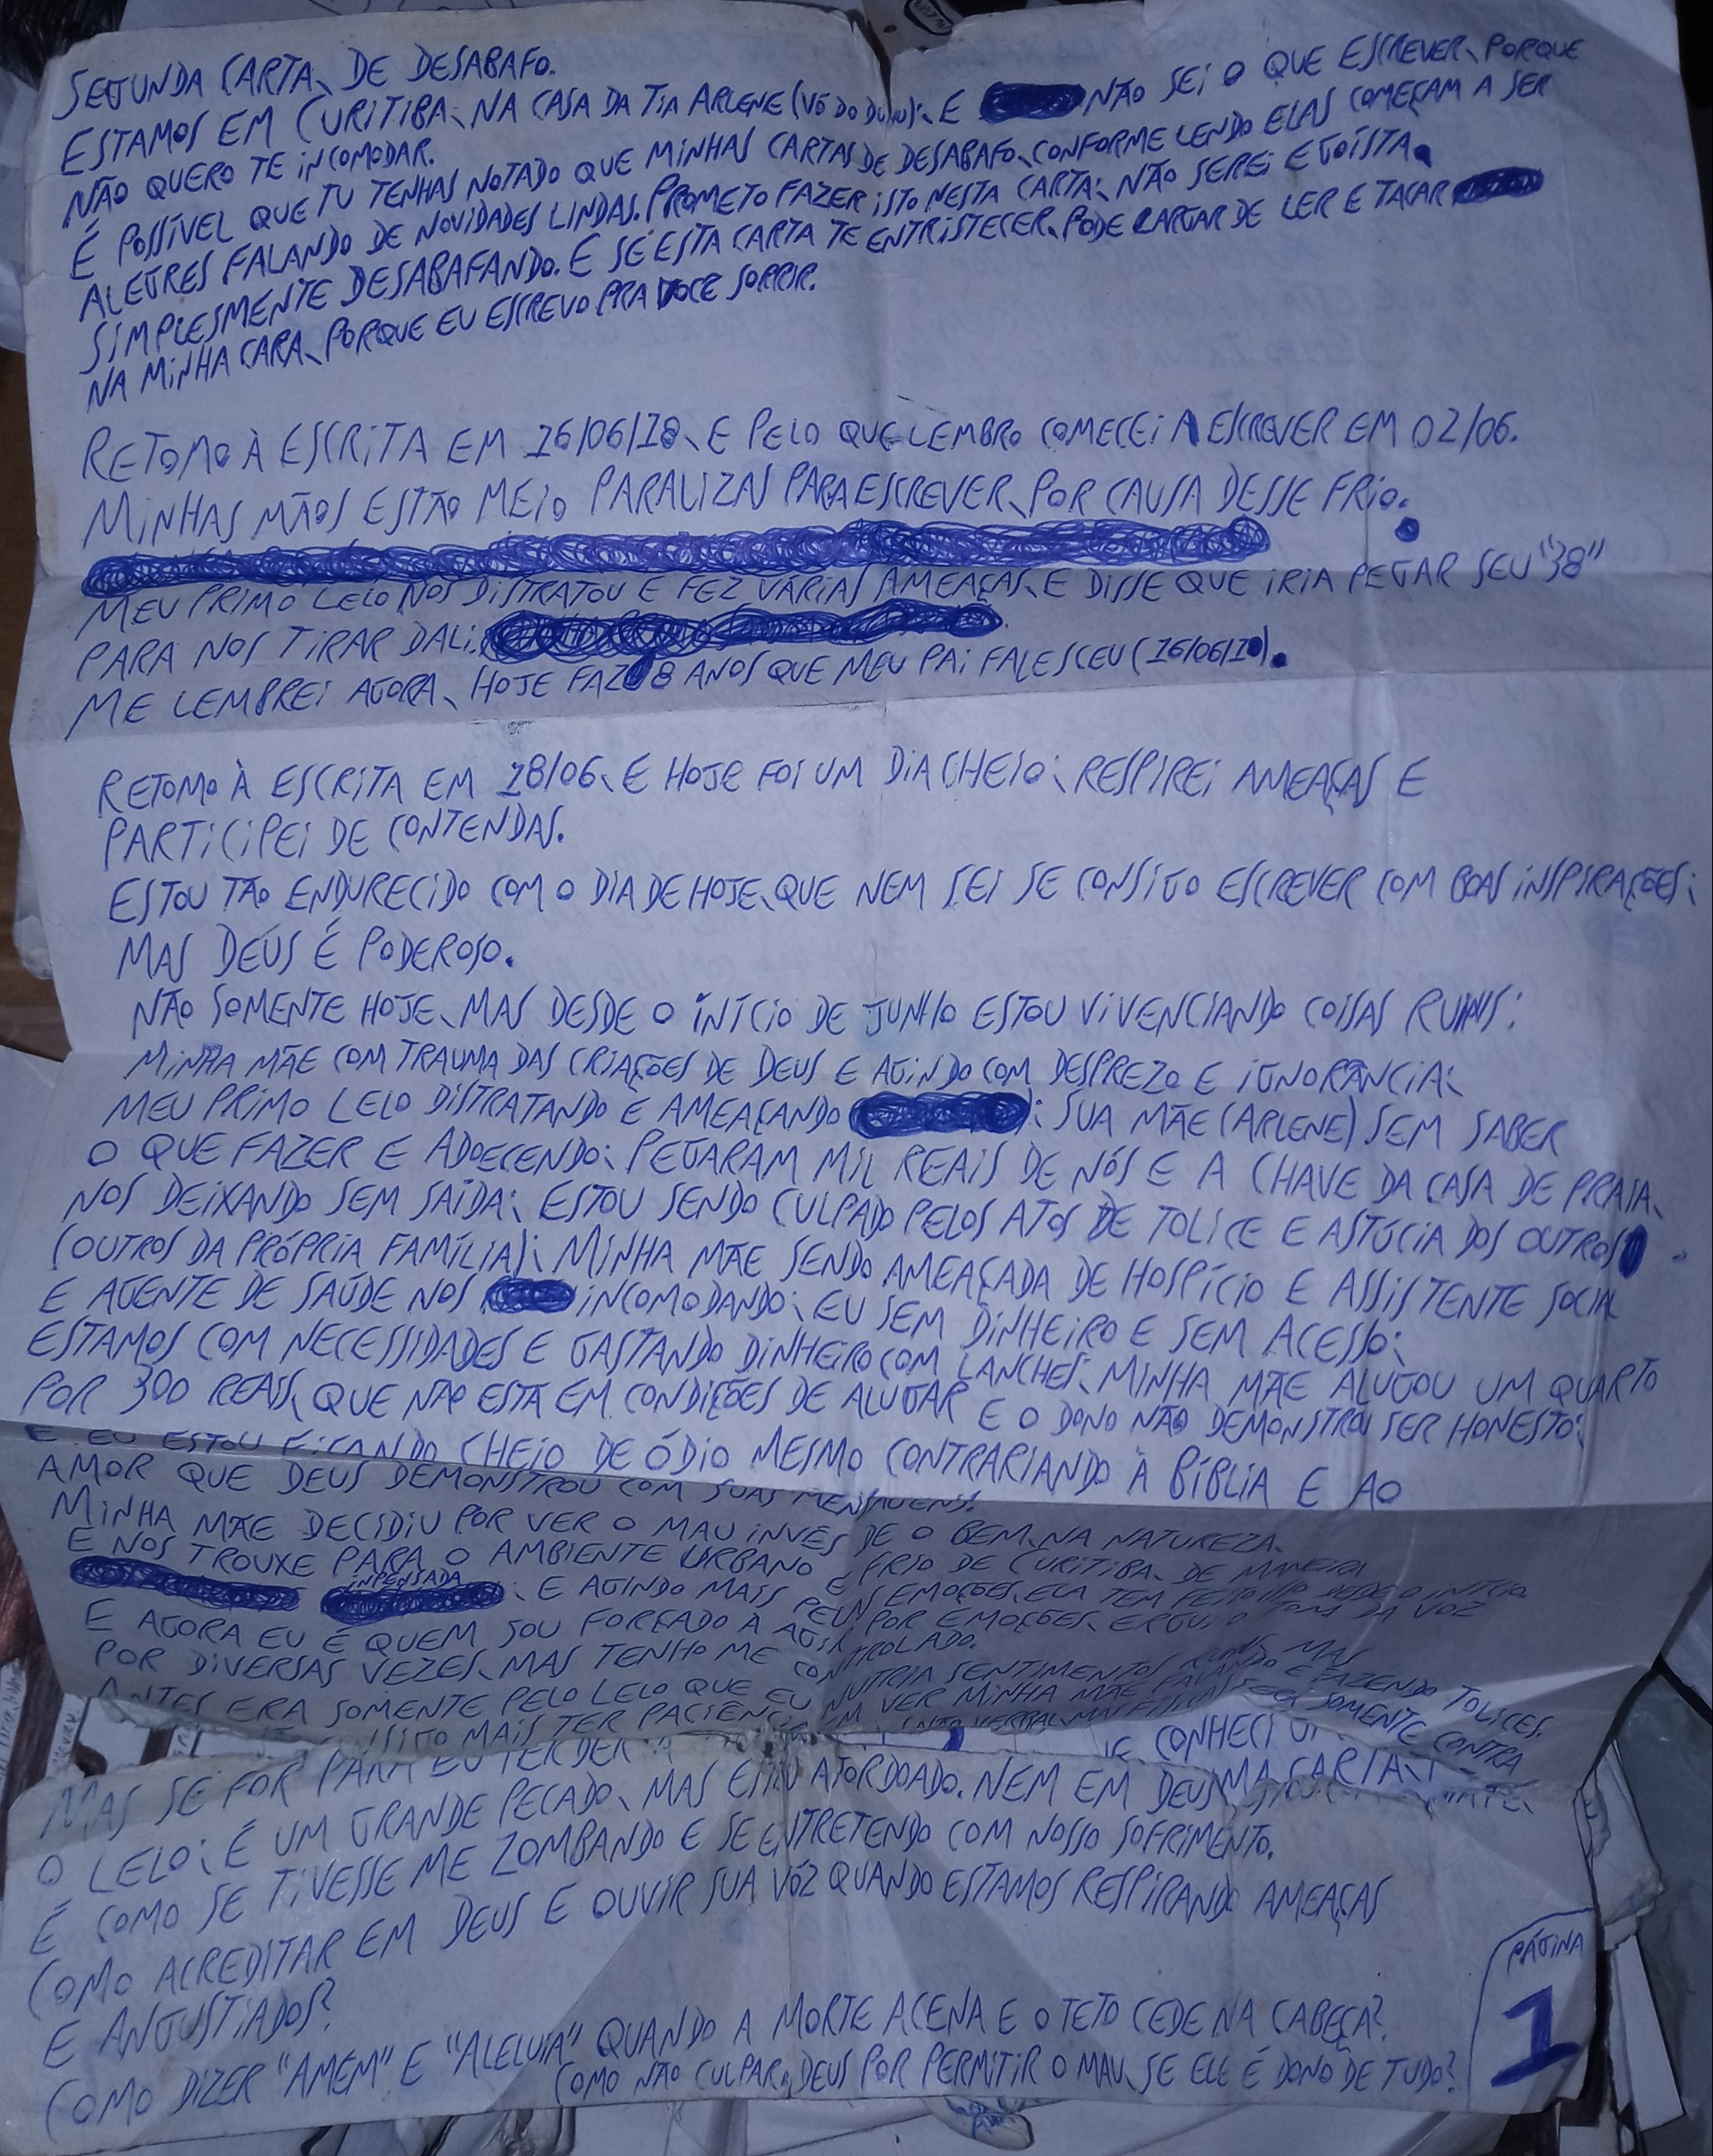 SEGUNDA CARTA, DE DESABAFO.
ESTAMOS EM CURITIBA, NA CASA DA TIA ARLENE (VÓ DO DUDU); E NÃO SEI O QUE ESCREVER, PORQUE
NÃO QUERO TE INCOMODAR.
É POSSÍVEL QUE TU TENHAS NOTADO QUE MINHAS CARTAS DE DESABAFO, CONFORME LENDO ELAS COMEÇAM A SER
ALEGRES FALANDO DE NOVIDADES LINDAS. PROMETO FAZER ISTO NESTA CARTA; NÃO SEREI EGOÍSTA.
SIMPLESMENTE DESABAFANDO. E SE ESTA CARTA TE ENTRISTECER, PODE LARGAR DE LER E TACAR
NA MINHA CARA, PORQUE EU ESCREVO PRA VOCE SORRIR.
RETOMO À ESCRITA EM 16/06/18, E PELO QUE LEMBRO COMECEI A ESCREVER EM 02/06.
MINHAS MÃOS ESTÃO MEIO PARALIZAS PARA ESCREVER, POR CAUSA DESSE FRIO.
MEU PRIMO LELO NOS DISTRATOU E FEZ VÁRIAS AMEAÇAS, E DISSE QUE IRIA PEGAR SEU "38"
PARA NOS TIRAR DALI.
ME LEMBREI AGORA, HOJE FAZ 8 ANOS QUE MEU PAI FALESCEU (16/06/10).
RETOMO À ESCRITA EM 18/06, E HOJE FOI UM DIA CHEIO; RESPIREI AMEAÇAS E
PARTICIPEI DE CONTENDAS.
ESTOU TÃO ENDURECIDO COM O DIA DE HOJE, QUE NEM SEI SE CONSIGO ESCREVER COM BOAS INSPIRAÇÕES;
MAS DEUS É PODEROSO.
NÃO SOMENTE HOJE, MAS DESDE O INÍCIO DE JUNHO ESTOU VIVENCIANDO COISAS RUINS:
MINHA MÃE COM TRAUMA DAS CRIAÇÕES DE DEUS E AGINDO COM DESPREZO E IGNORÂNCIA;
MEU PRIMO LELO DISTRATANDO E AMEAÇANDO ; SUA MÃE (ARLENE) SEM SABER
O QUE FAZER E ADOECENDO; PEGARAM MIL REAIS DE NÓS E A CHAVE DA CASA DE PRAIA,
NOS DEIXANDO SEM SAÍDA; ESTOU SENDO CULPADO PELOS ATOS DE TOLICE E ASTÚCIA DOS OUTROS
(OUTROS DA PRÓPRIA FAMÍLIA); MINHA MÃE SENDO AMEAÇADA DE HOSPÍCIO E ASSISTENTE SOCIAL
E AGENTE DE SAÚDE NOS INCOMODANDO; EU SEM DINHEIRO E SEM ACESSO;
ESTAMOS COM NECESSIDADES E GASTANDO DINHEIRO COM LANCHES, MINHA MÃE ALUGOU UM QUARTO
POR 300 REAIS, QUE NÃO ESTÁ EM CONDIÇÕES DE ALUGAR E O DONO NÃO DEMONSTROU SER HONESTO;
E EU ESTOU FICANDO CHEIO DE ÓDIO MESMO CONTRARIANDO À BÍBLIA E AO
AMOR QUE DEUS DEMONSTROU COM SUAS MENSAGENS.
MINHA MÃE DECIDIU POR VER O MAU INVÉS DE O BEM, NA NATUREZA,
E NOS TROUXE PARA O AMBIENTE URBANO E FRIO DE CURITIBA, DE MANEIRA
IMPENSADA; E AGINDO MAIS PELAS EMOÇÕES, ELA TEM FEITO DESDE O INÍCIO
E AGORA EU É QUEM SOU FORÇADO A AGIR POR EMOÇÕES, ERGUI O TOM DA VOZ
POR DIVERSAS VEZES, MAS TENHO ME CONTROLADO.
ANTES ERA SOMENTE PELO LELO QUE EU NUTRIA SENTIMENTOS RUINS, MAS
MAIS TER PACIÊNCIA EM VER MINHA MÃE FALANDO E FAZENDO TOLICES.
VERBAL, MAS SOMENTE CONTRA
MAS SE FOR PARA EU CONHECI
O LELO; É UM GRANDE PECADO, MAS ESTOU ATORDOADO. NEM EM DEUS
É COMO SE TIVESSE ME ZOMBANDO E SE ENTRETENDO COM NOSSO SOFRIMENTO.
COMO ACREDITAR EM DEUS E OUVIR SUA VÓZ QUANDO ESTAMOS RESPIRANDO AMEAÇAS
E ANGUSTIADOS?
COMO DIZER "AMÉM" E "ALELUIA" QUANDO A MORTE ACENA E O TETO CEDE NA CABEÇA?
COMO NÃO CULPAR DEUS POR PERMITIR O MAU, SE ELE É DONO DE TUDO?
PÁGINA
1